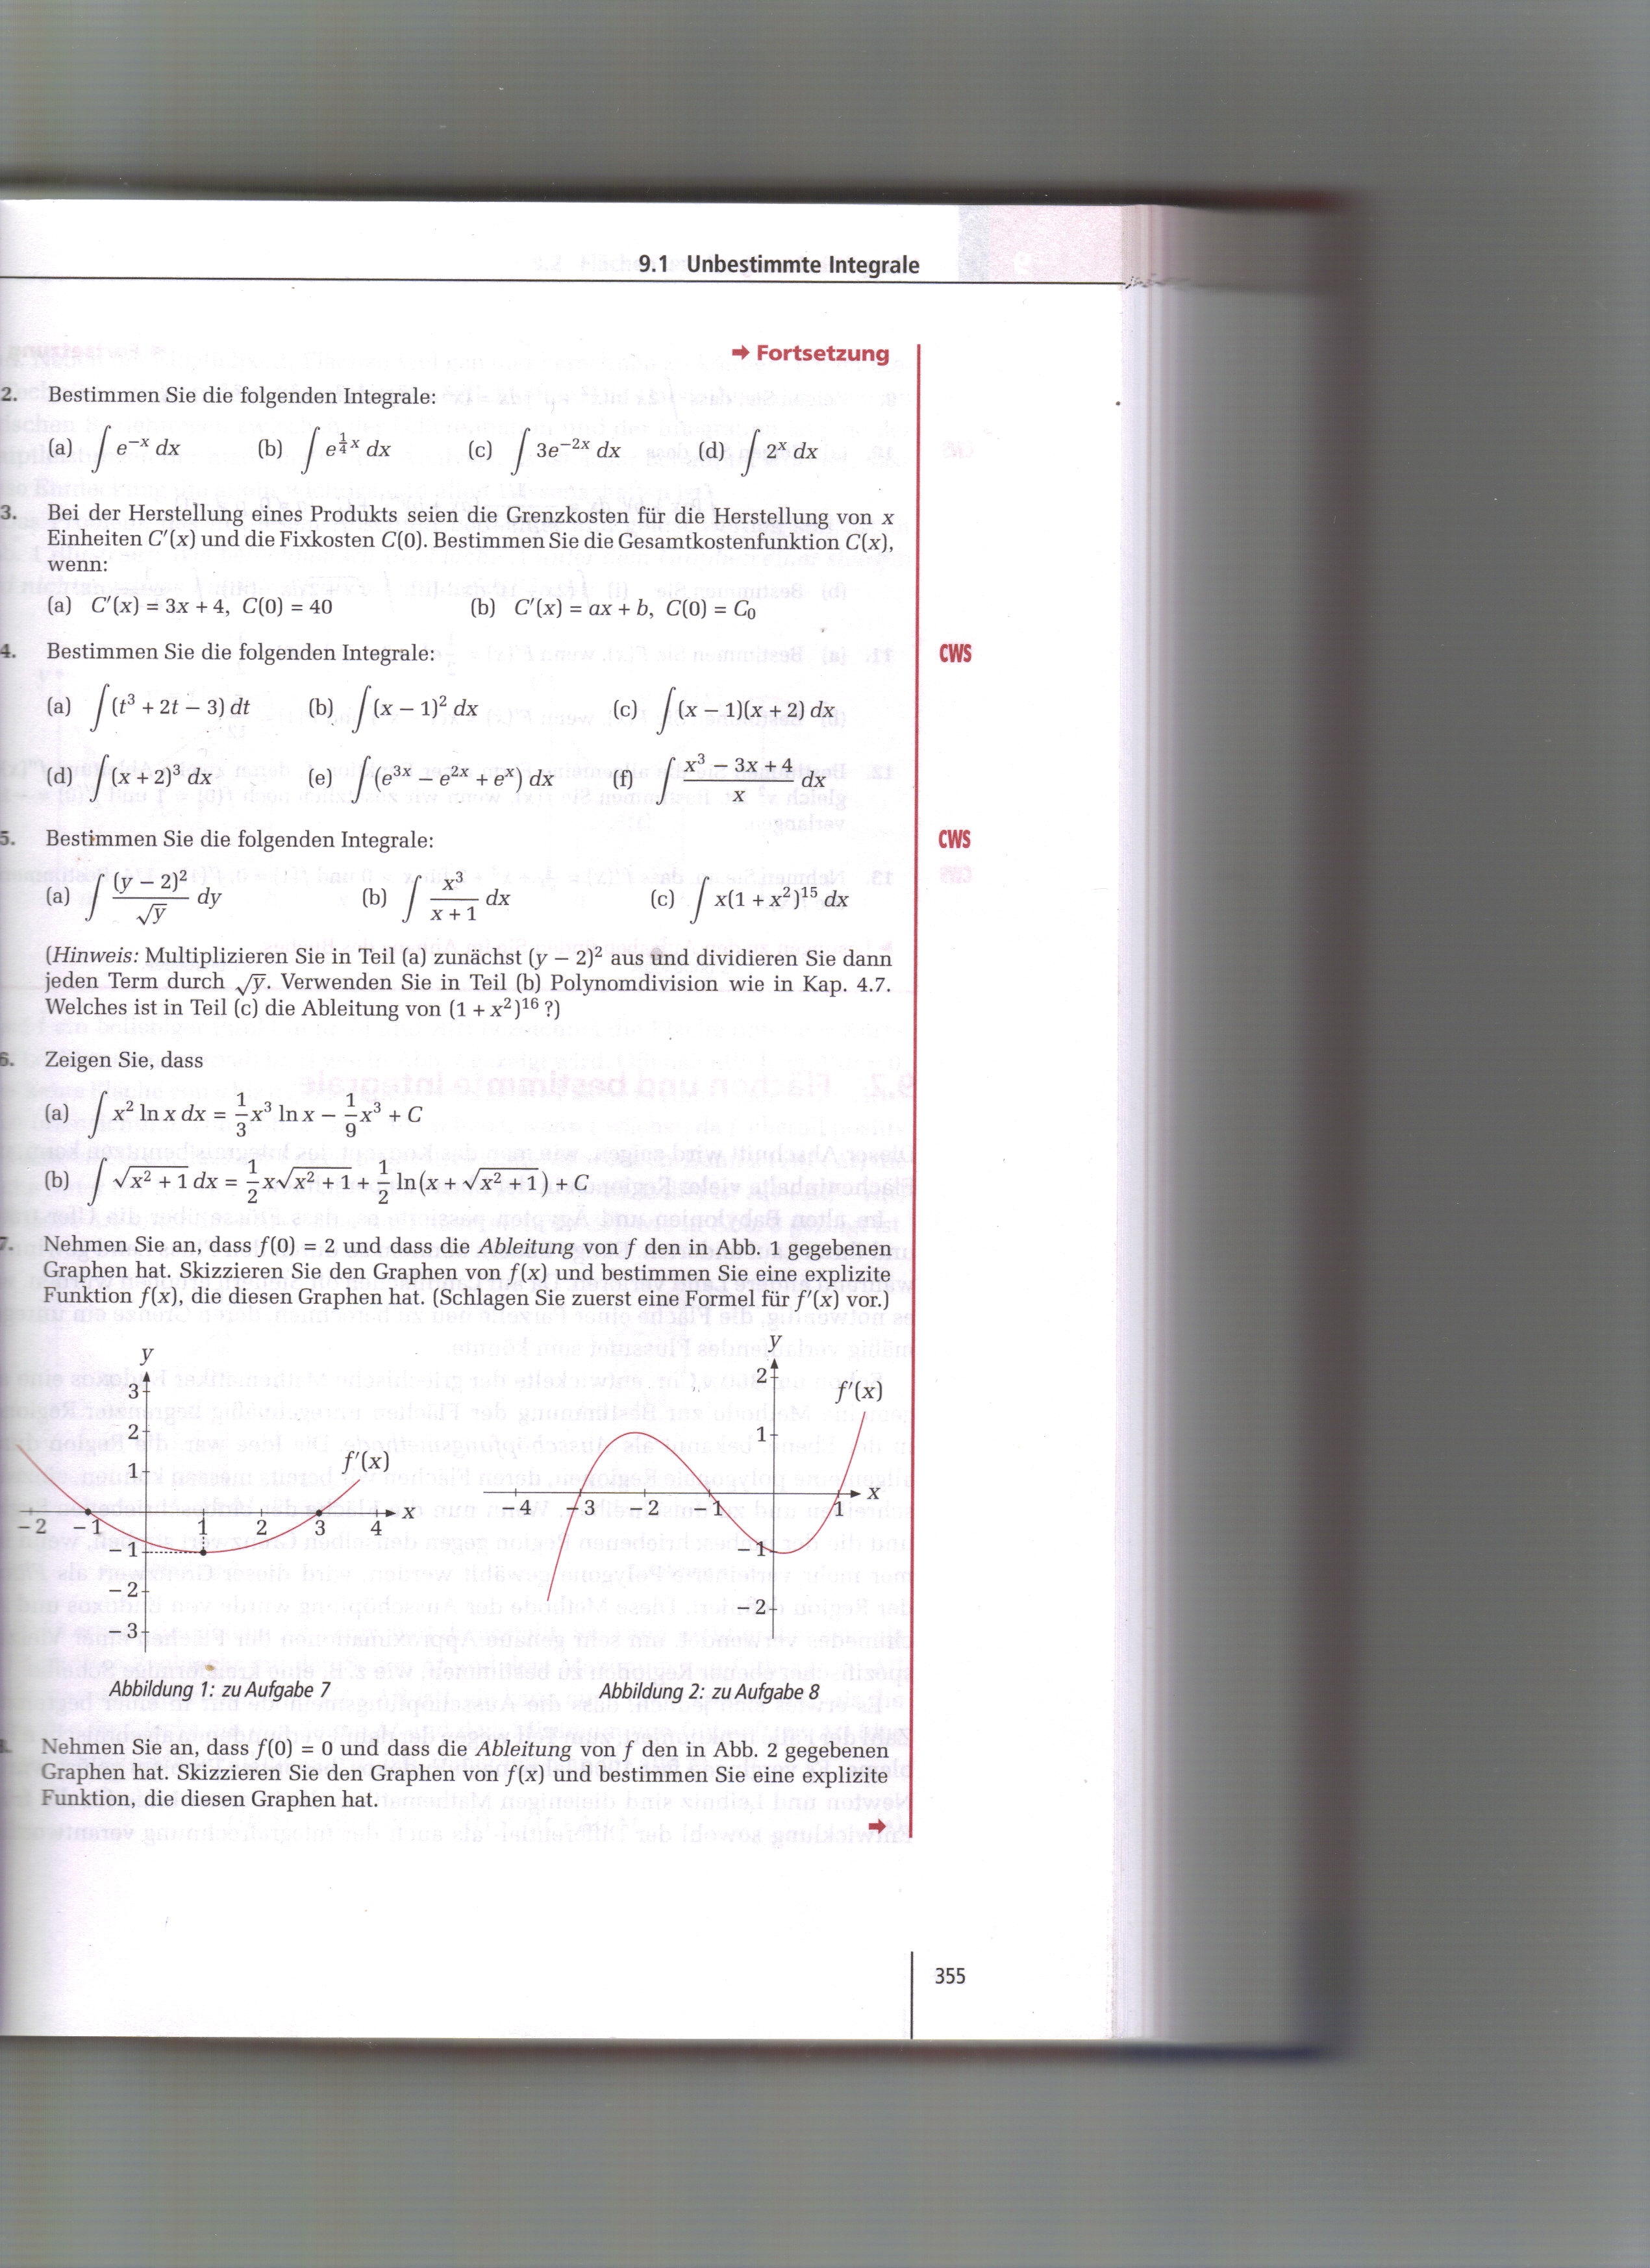 9.1 Unbestimmte Integrale
➡ Fortsetzung
2. Bestimmen Sie die folgenden Integrale:
(a) ∫ e⁻ˣ dx (b) ∫ e^{¼x} dx (c) ∫ 3e⁻²ˣ dx (d) ∫ 2ˣ dx
3. Bei der Herstellung eines Produkts seien die Grenzkosten für die Herstellung von x
Einheiten C′(x) und die Fixkosten C(0). Bestimmen Sie die Gesamtkostenfunktion C(x),
wenn:
(a) C′(x) = 3x + 4, C(0) = 40 (b) C′(x) = ax + b, C(0) = C₀
4. Bestimmen Sie die folgenden Integrale: CWS
(a) ∫ (t³ + 2t − 3) dt (b) ∫ (x − 1)² dx (c) ∫ (x − 1)(x + 2) dx
(d) ∫ (x + 2)³ dx (e) ∫ (e³ˣ − e²ˣ + eˣ) dx (f) ∫ (x³ − 3x + 4)/x dx
5. Bestimmen Sie die folgenden Integrale: CWS
(a) ∫ (y − 2)²/√y dy (b) ∫ x³/(x + 1) dx (c) ∫ x(1 + x²)¹⁵ dx
(Hinweis: Multiplizieren Sie in Teil (a) zunächst (y − 2)² aus und dividieren Sie dann
jeden Term durch √y. Verwenden Sie in Teil (b) Polynomdivision wie in Kap. 4.7.
Welches ist in Teil (c) die Ableitung von (1 + x²)¹⁶ ?)
6. Zeigen Sie, dass
(a) ∫ x² ln x dx = 1/3 x³ ln x − 1/9 x³ + C
(b) ∫ √(x² + 1) dx = 1/2 x√(x² + 1) + 1/2 ln(x + √(x² + 1)) + C
7. Nehmen Sie an, dass f(0) = 2 und dass die Ableitung von f den in Abb. 1 gegebenen
Graphen hat. Skizzieren Sie den Graphen von f(x) und bestimmen Sie eine explizite
Funktion f(x), die diesen Graphen hat. (Schlagen Sie zuerst eine Formel für f′(x) vor.)
y
3
2
1
f′(x)
x
−2 −1 1 2 3 4
−1
−2
−3
Abbildung 1: zu Aufgabe 7
y
2
f′(x)
1
x
−4 −3 −2 −1 1
−1
−2
Abbildung 2: zu Aufgabe 8
Nehmen Sie an, dass f(0) = 0 und dass die Ableitung von f den in Abb. 2 gegebenen
Graphen hat. Skizzieren Sie den Graphen von f(x) und bestimmen Sie eine explizite
Funktion, die diesen Graphen hat.
➡
355